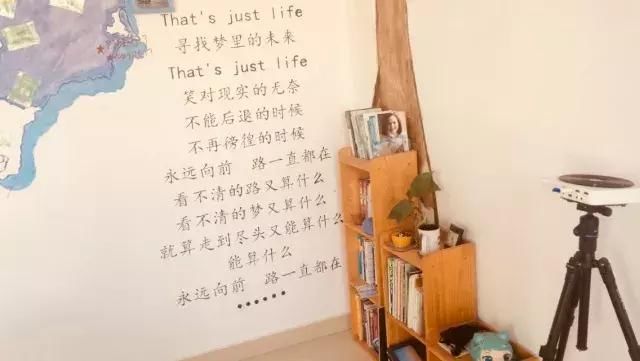 That's just life
寻找梦里的未来
That's just life
笑对现实的无奈
不能后退的时候
不再彷徨的时候
永远向前 路一直都在
看不清的路又算什么
看不清的梦又算什么
就算走到尽头又能算什么
能算什么
永远向前 路一直都在
••••••